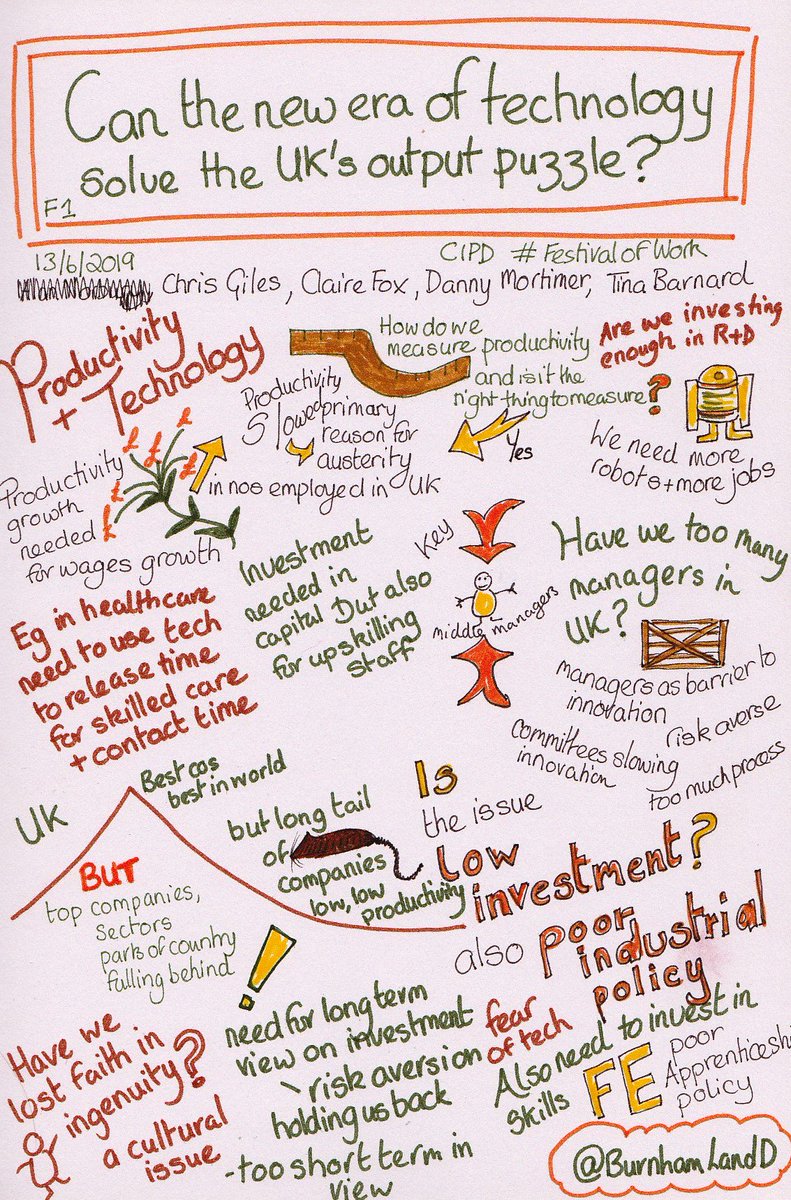 Can the new era of technology
solve the UK's output puzzle?
F1
13/6/2019
CIPD # Festival of Work
Chris Giles, Claire Fox, Danny Mortimer, Tina Barnard
Productivity
+ Technology
How do we
measure productivity
and is it the
right thing to measure?
Yes
Are we investing
enough in R+D
?
We need more
robots + more jobs
Productivity
Slowed primary
reason for
austerity
in nos employed in UK
Productivity
growth
needed
for wages growth
£
£
£
£
Eg in healthcare
need to use tech
to release time
for skilled care
+ contact time
Investment
needed in
capital But also
for upskilling
staff
Key
middle managers
Have we too many
managers in
UK?
managers as barrier to
innovation
risk averse
Committees slowing
innovation
too much process
UK
Best cos
best in world
BUT
top companies,
sectors
parts of country
falling behind
but long tail
of
companies
low, low
productivity
Is
the issue
low
investment?
also poor
industrial
policy
!
Have we
lost faith in
ingenuity?
a cultural
issue
need for long term
view on investment
risk aversion
holding us back
- too short term in
view
fear
of tech
Also need to invest in
skills
FE
poor
Apprenticeship
policy
@BurnhamLandD